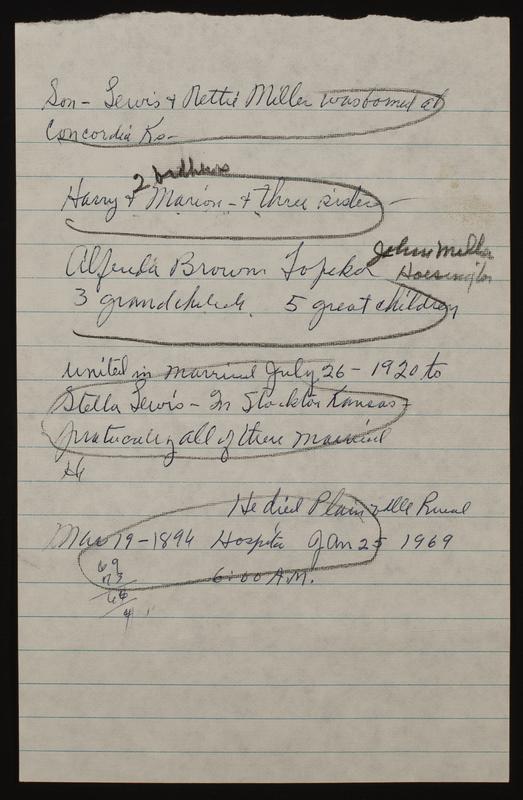 Son - Lewis & Nettie Miller was borned at
Concordia Ks-
2 brothers
Harry & Marion - & three sister -
Alfreda Brown Topeka
John Miller
Hoisington
3 grandchildr. 5 great children
united in married July 26 - 1920 to
Stella Lewis - In Stockton Kansas -
all of their married
He
He died Plainville Rural
Mar 19 - 1894 Hospita Jan 25 1969
6:00 A.M.
69